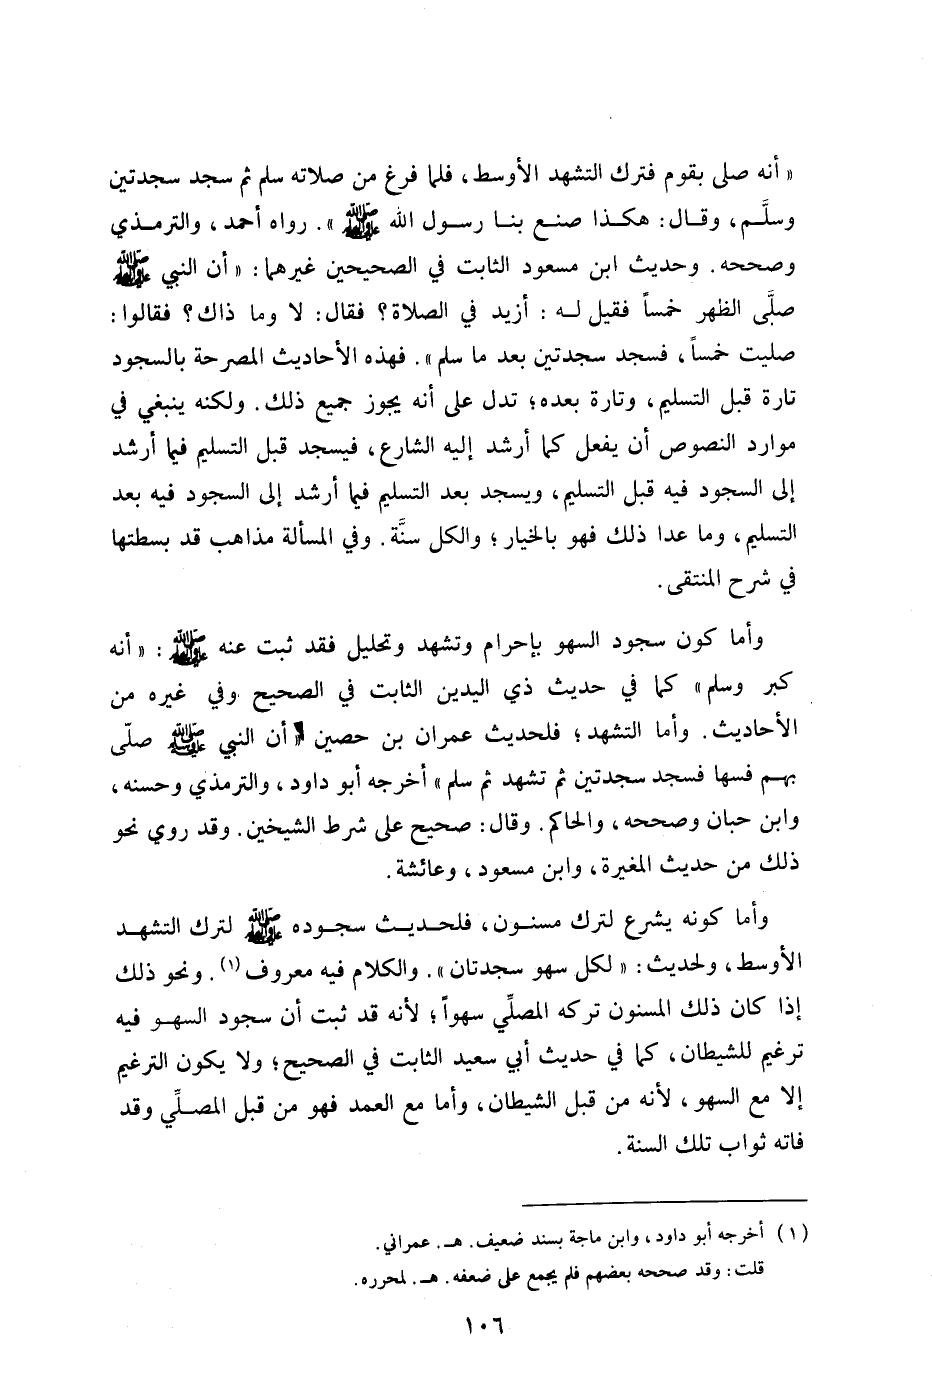 « أنه صلى بقوم فترك التشهد الأوسط، فلما فرغ من صلاته سلم ثم سجد سجدتين
وسلَّم، وقال: هكذا صنع بنا رسول الله ﷺ ». رواه أحمد، والترمذي
وصححه. وحديث ابن مسعود الثابت في الصحيحين غيرهما: « أن النبي ﷺ
صلَّى الظهر خمساً فقيل له: أزيد في الصلاة؟ فقال: لا وما ذاك؟ فقالوا:
صليت خمساً، فسجد سجدتين بعد ما سلم ». فهذه الأحاديث المصرحة بالسجود
تارة قبل التسليم، وتارة بعده؛ تدل على أنه يجوز جميع ذلك. ولكنه ينبغي في
موارد النصوص أن يفعل كما أرشد إليه الشارع، فيسجد قبل التسليم فيما أرشد
إلى السجود فيه قبل التسليم، ويسجد بعد التسليم فيما أرشد إلى السجود فيه بعد
التسليم، وما عدا ذلك فهو بالخيار؛ والكل سنَّة. وفي المسألة مذاهب قد بسطتها
في شرح المنتقى.
وأما كون سجود السهو بإحرام وتشهد وتحليل فقد ثبت عنه ﷺ: « أنه
كبر وسلم » كما في حديث ذي اليدين الثابت في الصحيح وفي غيره من
الأحاديث. وأما التشهد؛ فلحديث عمران بن حصين « أن النبي ﷺ صلّى
بهم فسها فسجد سجدتين ثم تشهد ثم سلم » أخرجه أبو داود، والترمذي وحسنه،
وابن حبان وصححه، والحاكم. وقال: صحيح على شرط الشيخين. وقد روي نحو
ذلك من حديث المغيرة، وابن مسعود، وعائشة.
وأما كونه يشرع لترك مسنون، فلحديث سجوده ﷺ لترك التشهد
الأوسط، ولحديث: « لكل سهو سجدتان ». والكلام فيه معروف (١). ونحو ذلك
إذا كان ذلك المسنون تركه المصلِّي سهواً؛ لأنه قد ثبت أن سجود السهو فيه
ترغيم للشيطان، كما في حديث أبي سعيد الثابت في الصحيح؛ ولا يكون الترغيم
إلا مع السهو، لأنه من قبل الشيطان، وأما مع العمد فهو من قبل المصلِّي وقد
فاته ثواب تلك السنة.
(١) أخرجه أبو داود، وابن ماجة بسند ضعيف. هـ. عمراني.
قلت: وقد صححه بعضهم فلم يجمع على ضعفه. هـ. لمحرره.
١٠٦